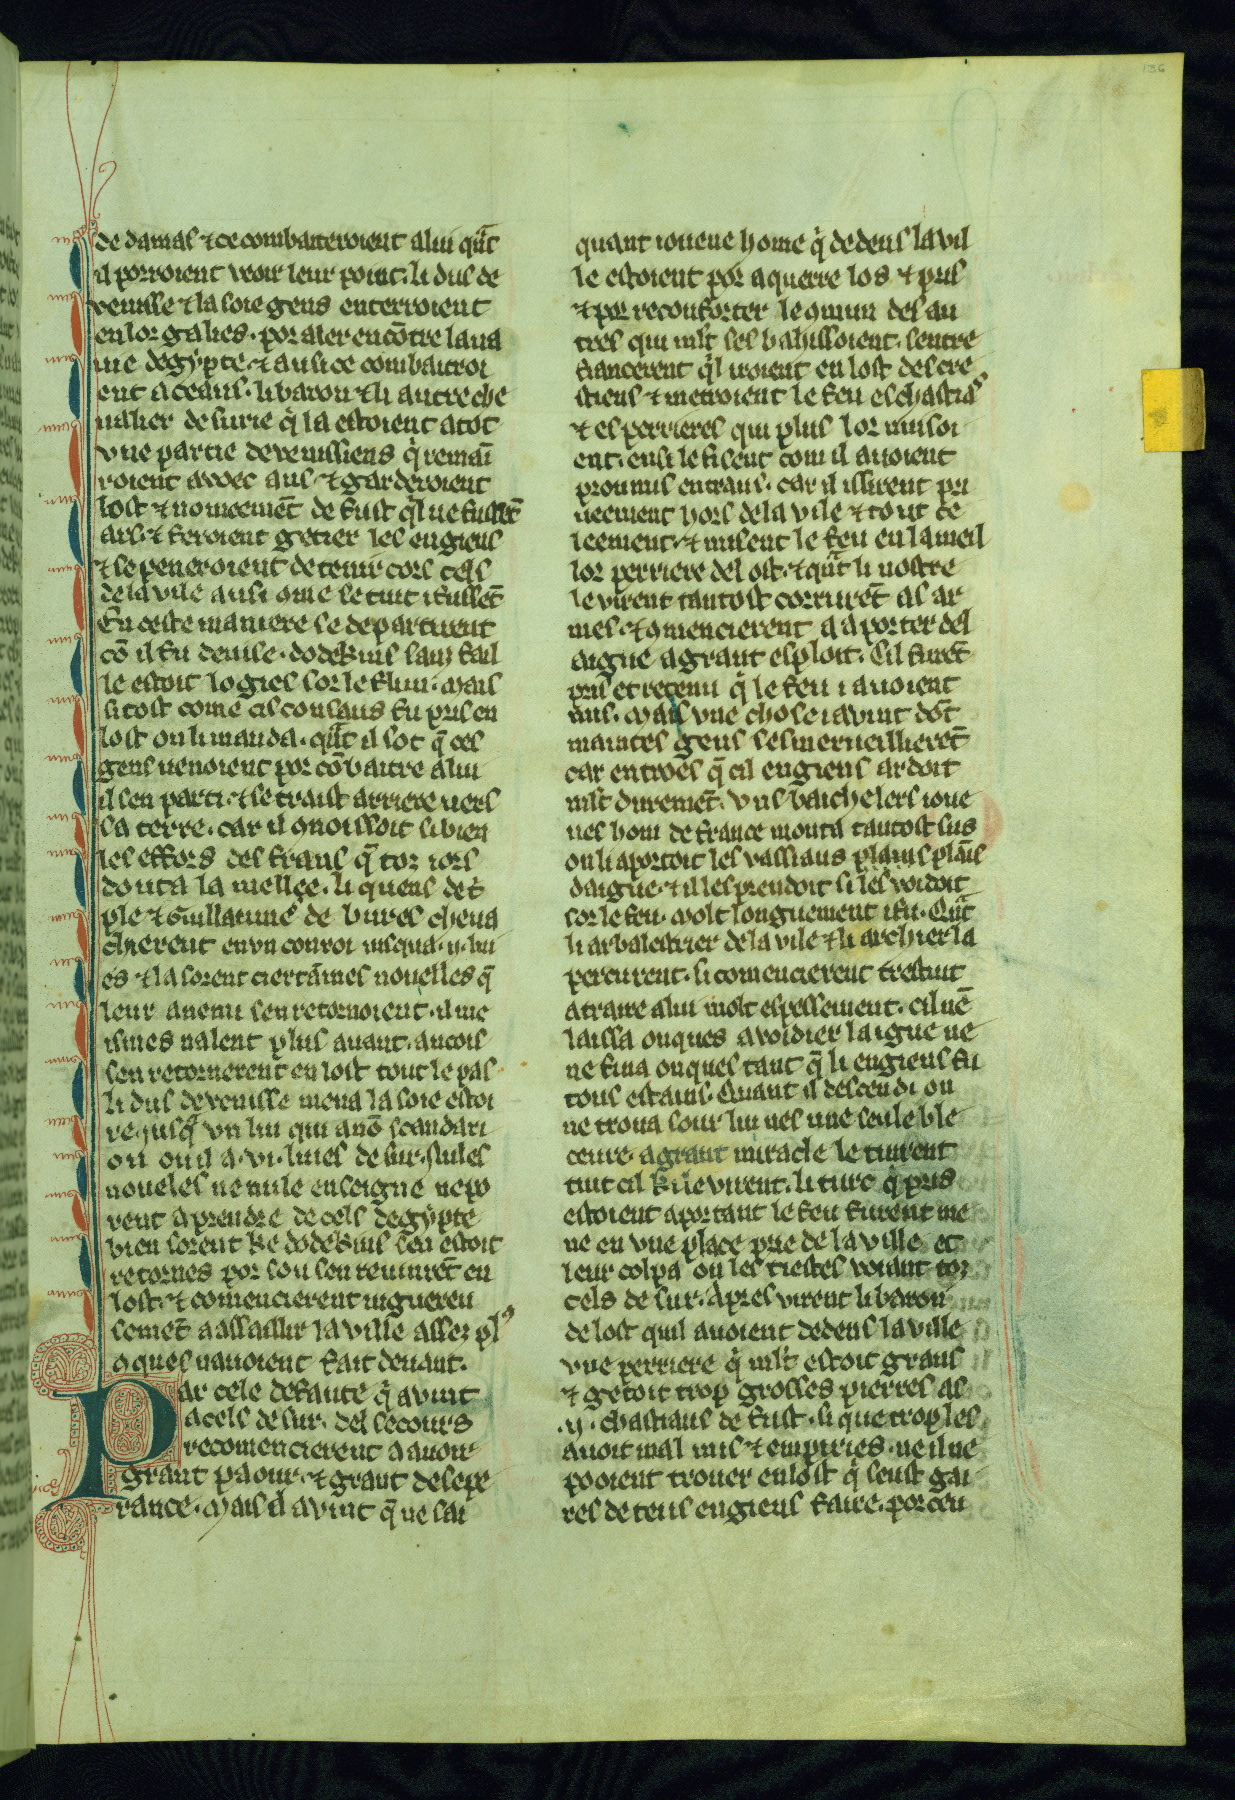 136
de damas ⁊ ce combateroient a lui qu̅t
il porroient veoir leur point. li dus de
venisse ⁊ la soie gens enterroient
en lor galies. por aler enco̅tre la na
uie degypte. ⁊ ausi ce combateroi
ent a ceaus. li baron ⁊ li autre che
ualier de surie q̇ la estoient a tot
vne partie de venissiens q̇ remai̅
roient avvec aus. ⁊ garderoient
lost ⁊ nomeeme̅t de fust q̇l ne fusse̅t
ars. ⁊ feroient getier les engiens
⁊ se peneroient de tenir cors cels
de la vile ausi ome se tuit i fusse̅t
En ceste maniere se departirent
co̅ il fu deuise. dodekins sanz fail
le estoit logies sor le flun. mais
si tost come cis consaus fu pris en
lost on li manda. qu̅t il sot q̅ ces
gens uenoient por co̅batre a lui
il sen parti. ⁊ se traist arriere uers
sa terre. car il qnoissoit si bien
les effors des frans q̅ toz iors
douta la mellee. li quens de t̅
ple ⁊ Guillaume de bures cheua
chierent en vn conroi iusqua .ii. liu
es ⁊ la sorent certai̅nes nouelles q̅
leur anemi sen retornoient. il me
ismes nalent plus auant. ancois
sen retornerent en lost tout le pas
li dus de venisse mena la soie estoi
re iusq̇ vn liu qui a no̅ scandari
on ou il a .vi. liues de sur. nules
noueles ne nule enseigne ne po
rent aprendre de cels degypte
bien sorent ke dodekins sen estoit
retornes por sou sen reuinre̅t en
lost. ⁊ comencierent uiguereu
seme̅t a assaillir la ville assez pl9
q̇ques nauoient fait deuant.
Par cele defaute q̇ auint
a cels de sur. del secours
recomencierent a auoir
grant paour. ⁊ grant desespe
rance. mais il auint q̅ ne sai
quant ioueue home q̇ dedens la vil
le estoient por aquerre los ⁊ pris
⁊ por reconforter le qmun des au
tres qui ml̅t ses bahissoient. sentre
fiancerent q̇l iroient en lost des cre
stiens ⁊ metroient le feu es chastia9
⁊ es perrieres qui plus lor nuisoi
ent. ensi le fisent com il auoient
proumis entraus. car il issirent pri
ueement hors de la vile ⁊ tout ce
leement. ⁊ misent le feu en la meil
lor perriere del ost. ⁊ qu̅t li nostre
le virent tantost corrure̅t as ar
mes. ⁊ qmencierent a aporter del
aigue a grant esploit. Cil fure̅t
pris et retenu q̇ le feu i auoient
mis. Mais vne chose i avint do̅t
maintes gens sesmerueilliere̅t
car entroes q̅ cil engiens ardoit
ml̅t dureme̅t. vns baichelers ioue
nes hom de france monta tantost sus
on li aportoit les vassiaus plains plai̅s
daigue. ⁊ il les prendoit si les voidoit
sor le feu. molt longuement i fu. Qu̅t
li arbalestrier de la vile ⁊ li archier la
percurent. si comencierent trestuit
a traire a lui molt espessement. cil ne̅
laissa onques a voidier laigue ne
ne fina onques tant q̅ li engiens fu
tous estains. Quant il descendi on
ne troua sour lui nes une seule ble
ceure. a grant miracle le tinrent
tuit cil ki le virent. li turc q̇ pris
estoient aportant le feu furent me
ne en vne place pr̅e de la ville et
leur colpa on les tiestes voiant toz
cels de sur. Apres virent li baron
de lost quil auoient dedens la ville
vne perriere q̇ ml̅t estoit grans
⁊ getoit trop grosses pierres as
.ij. chastiaus de fust. si que trop les
auoit mal mis ⁊ empiries. ne il ne
pooient trouer en lost q̇ seust gai
res de teus engiens faire. por ceu